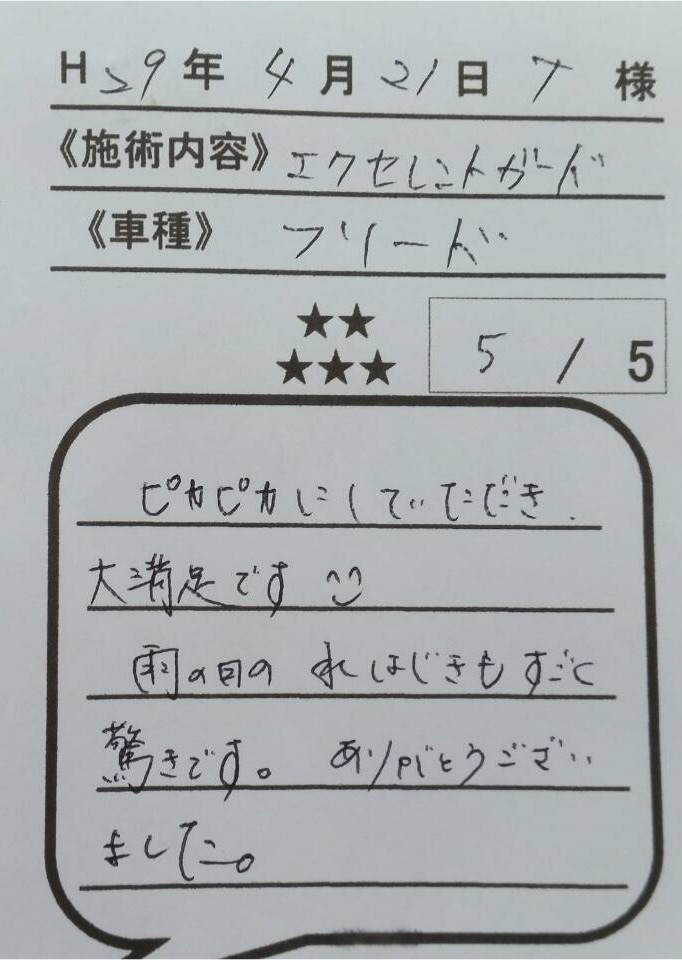 H29年 4月21日 T 様
《施術内容》エクセレントガード
《車種》 フリード
★★
★★★ 5 / 5
ピカピカにしていただき、
大満足です
雨の日の水はじきもすごく
驚きです。 ありがとうござい
ました。